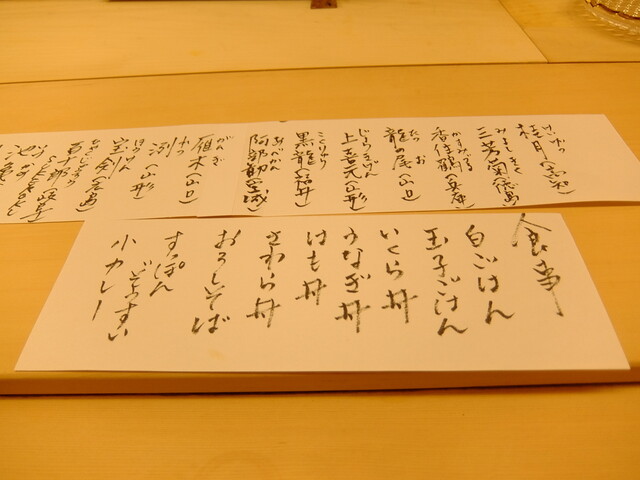 けいげつ
桂月(高知)
みよしきく
三芳菊(徳島)
かすみづる
香住鶴(兵庫)
たつ お
龍の尾(山口)
じょうきげん
上喜元(山形)
こくりゅう
黒龍(福井)
あべかん
阿部勘(宮城)
がんぎ
雁木(山口)
冽(山形)
ほうけん
宝剣(広島)
食事
白ごはん
玉子ごはん
いくら丼
うなぎ丼
はも丼
さわら丼
おろしそば
すっぽん
ぞうすい
小カレー